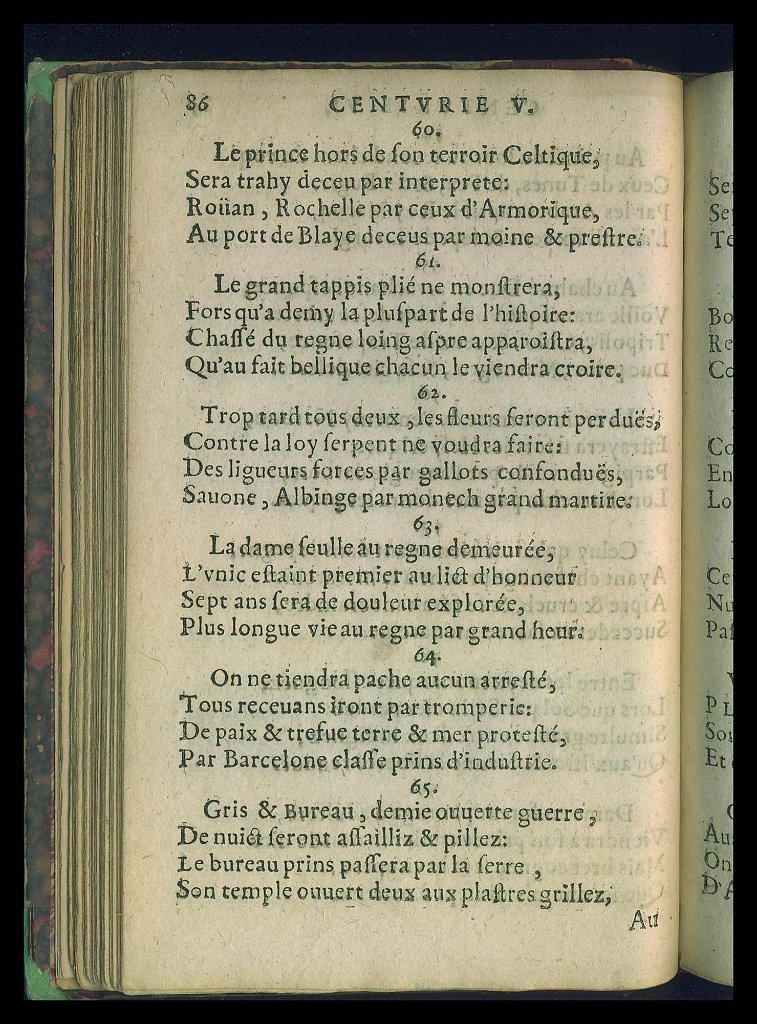 86 CENTVRIE V.
60.
Le prince hors de ſon terroir Celtique,
Sera trahy deceu par interprete:
Roüan , Rochelle par ceux d'Armorique,
Au port de Blaye deceus par moine & preſtre.
61.
Le grand tappis plié ne monſtrera,
Fors qu'a demy la pluſpart de l'hiſtoire:
Chaſſé du regne loing aſpre apparoiſtra,
Qu'au fait bellique chacun le viendra croire.
62.
Trop tard tous deux , les fleurs ſeront perduës,
Contre la loy ſerpent ne voudra faire:
Des ligueurs forces par gallots confonduës,
Sauone , Albinge par monech grand martire.
63.
La dame ſeulle au regne demeurée,
L'vnic eſtaint premier au lict d'honneur
Sept ans ſera de douleur explorée,
Plus longue vie au regne par grand heur.
64.
On ne tiendra pache aucun arreſté,
Tous receuans iront par tromperie:
De paix & trefue terre & mer proteſté,
Par Barcelone claſſe prins d'induſtrie.
65.
Gris & Bureau , demie ouuerte guerre ,
De nuict ſeront aſſailliz & pillez:
Le bureau prins paſſera par la ſerre ,
Son temple ouuert deux aux plaſtres grillez,
Au
Te
Bo
Re
Co
Co
En
Lo
Ce
Nu
Et
Au
On